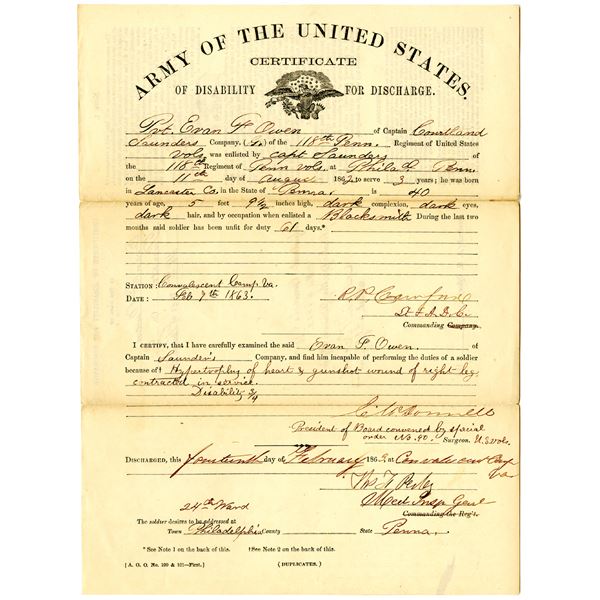 ARMY OF THE UNITED STATES.
CERTIFICATE
OF DISABILITY FOR DISCHARGE.
Pvt. Evan F Owen of Captain Courtland
Saunders Company, of the 118th Penn. Regiment of United States
Vols was enlisted by Capt Saunders of
the 118th Regiment of Penn Vols. at Philad. Penn.
on the 11th day of August 1862 to serve 3 years; he was born
in Lancaster Co, in the State of Penna, is 40
years of age, 5 feet 9 1/2 inches high, dark complexion, dark eyes,
dark hair, and by occupation when enlisted a Blacksmith During the last two
months said soldier has been unfit for duty 61 days.*
STATION: Convalescent Camp Va.
DATE: Feb 7th 1863.
Commanding Company.
I CERTIFY, that I have carefully examined the said Evan F. Owen. of
Captain Saunders Company, and find him incapable of performing the duties of a soldier
because of† Hypertrophy of heart & gunshot wound of right leg
contracted in service.
Disability 3/4
President of Board convened by special
order No. 90. Surgeon. U.S. Vols.
DISCHARGED, this fourteenth day of February 1863 at Convalescent Camp
Va
Med. Insp. Genl
Commanding the Reg't.
24th Ward
The soldier desires to be addressed at
Town Philadelphia County State Penna.
* See Note 1 on the back of this. †See Note 2 on the back of this.
[A. G. O. No. 100 & 101—First.] (DUPLICATES.)